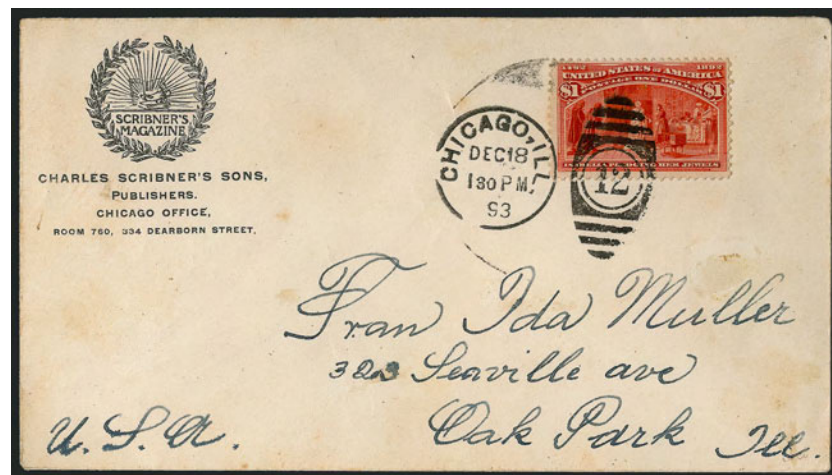 SCRIBNER'S
MAGAZINE
CHARLES SCRIBNER'S SONS,
PUBLISHERS.
CHICAGO OFFICE,
ROOM 760, 334 DEARBORN STREET.
CHICAGO, ILL.
DEC 18
130 PM.
93
12
1492 1892
UNITED STATES OF AMERICA
POSTAGE ONE DOLLAR
$1 $1
ISABELLA PLEDGING HER JEWELS
Frau Ida Muller
323 Scoville ave
Oak Park Ill.
U.S.A.